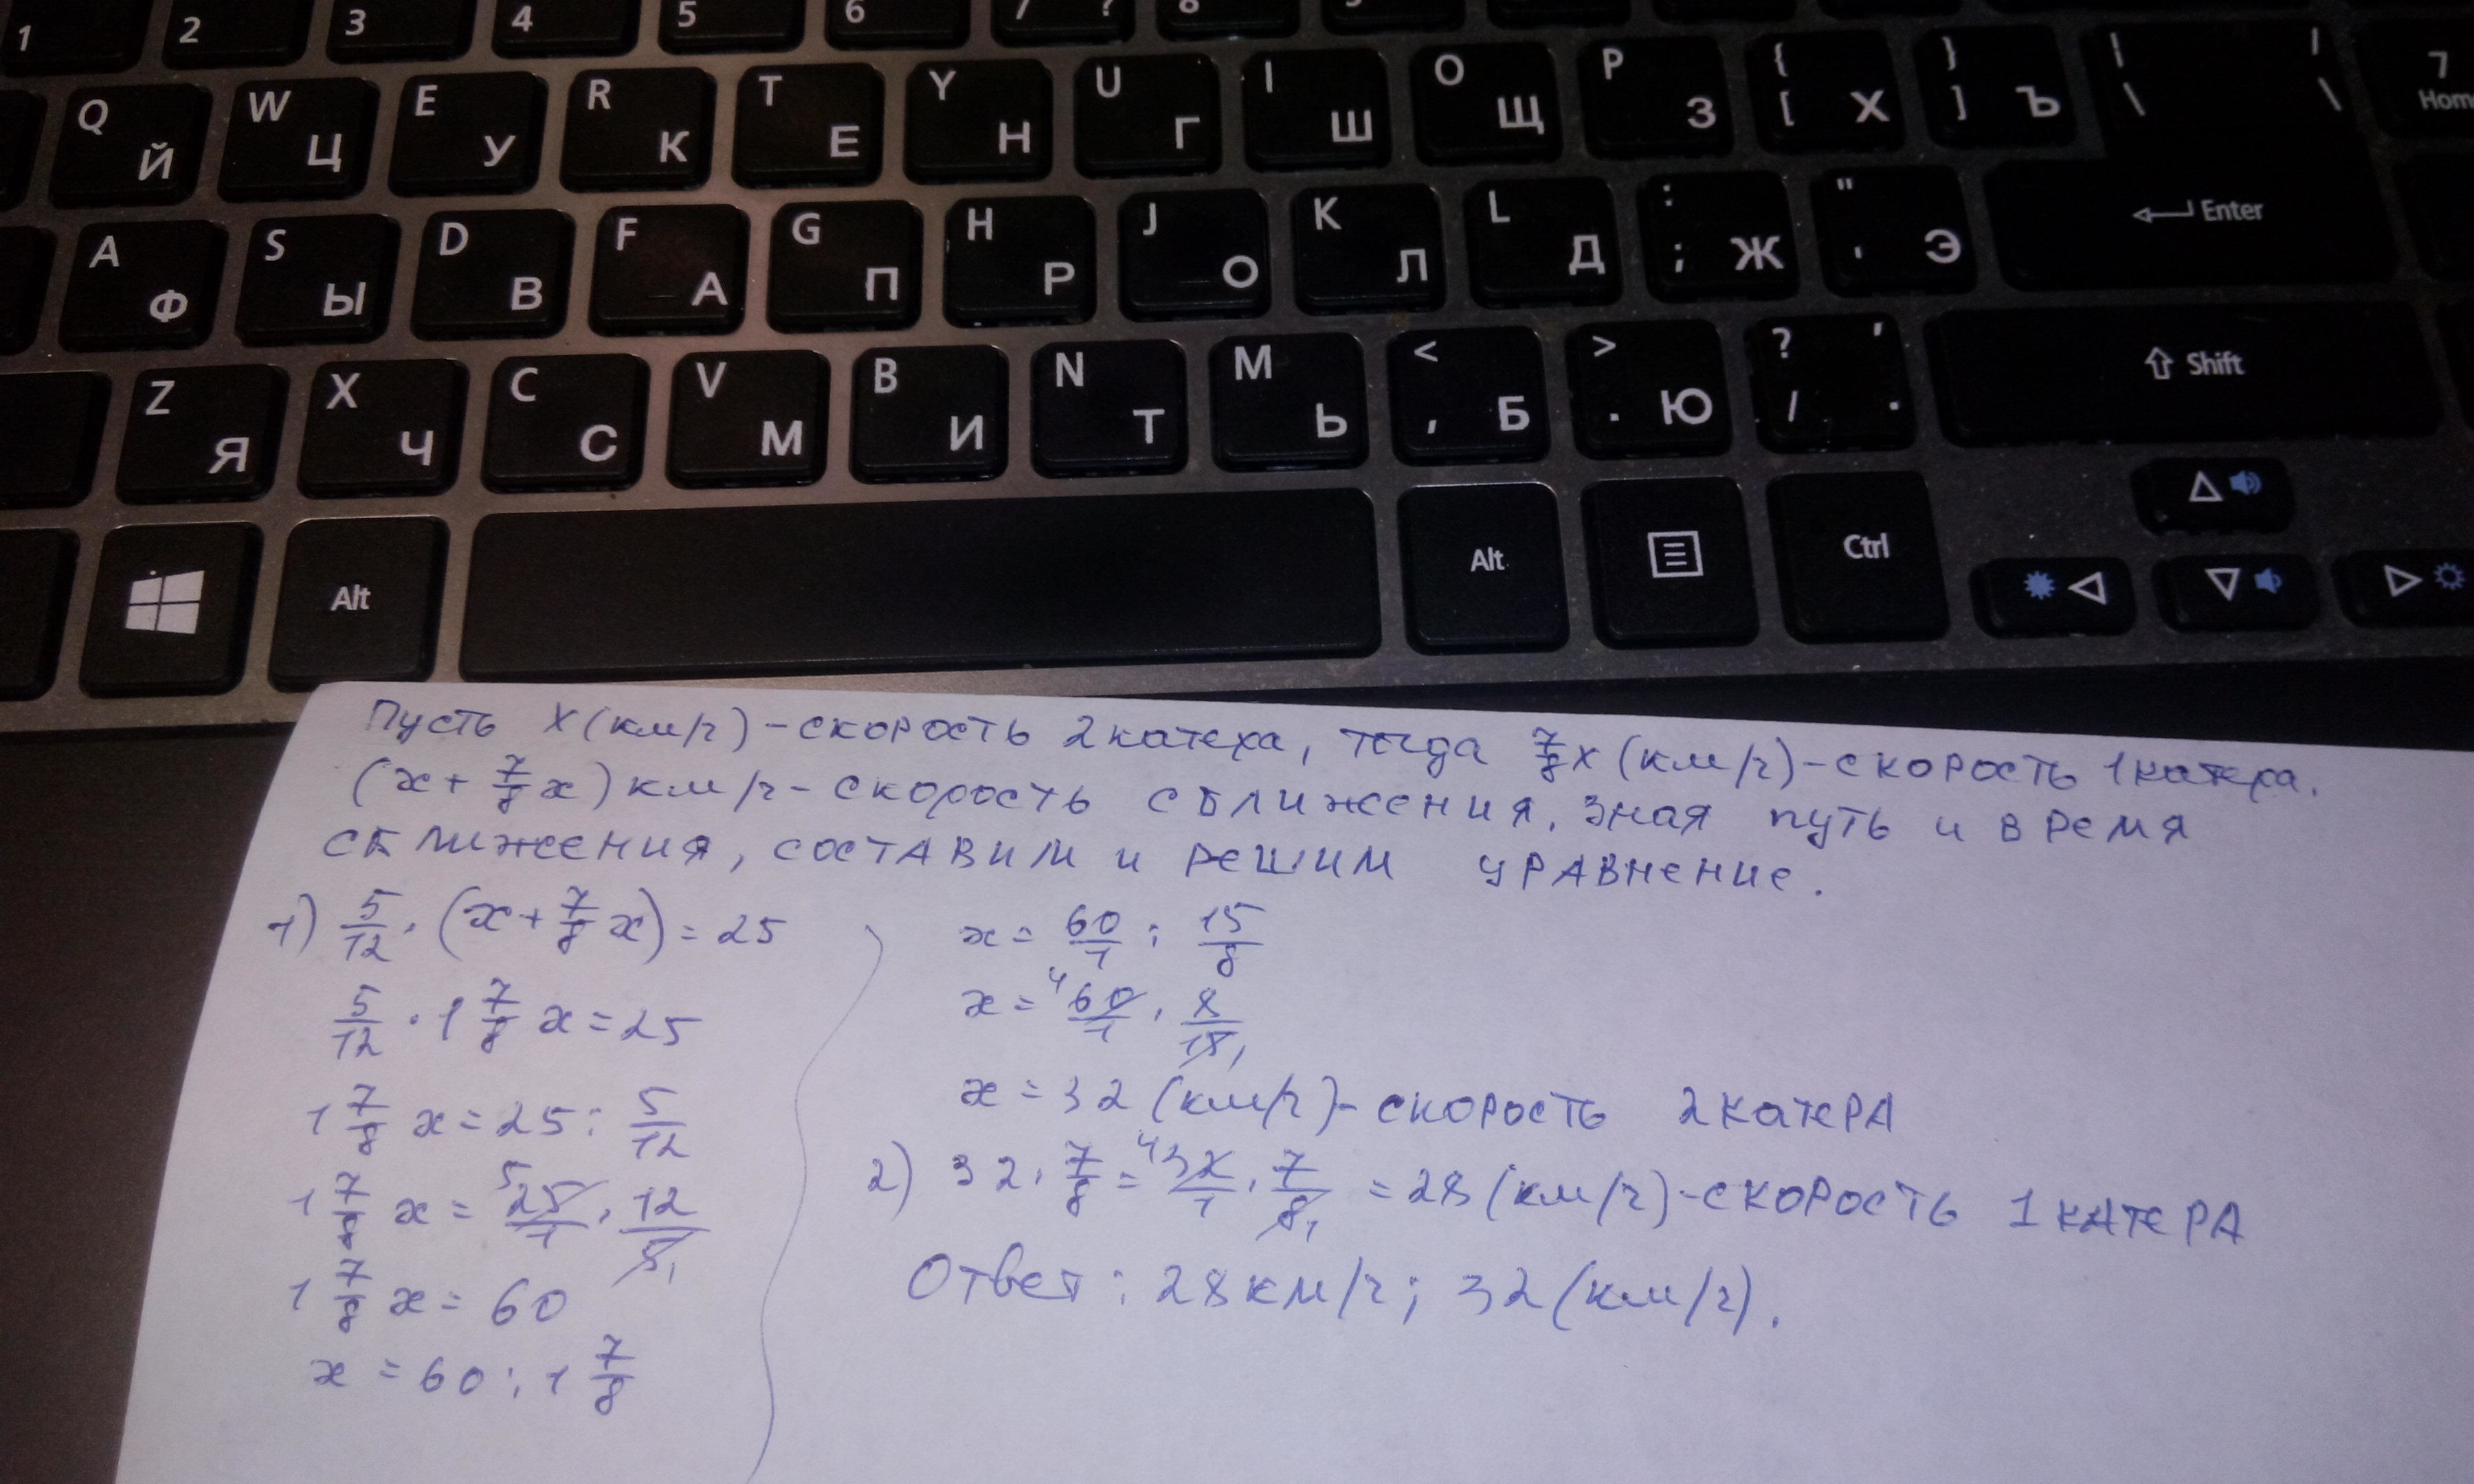 1 2 3 4 5 6 7 ? 8
Q Й W Ц E У R К T Е Y Н U Г I Ш O Щ P З { [ Х } ] Ъ | \ / \ 7 Hom
A Ф S Ы D В F А G П H Р J О K Л L Д : ; Ж " ' Э Enter
Z Я X Ч C С V М B И N Т M Ь < , Б > . Ю ? / , . Shift
Alt Alt Ctrl
Пусть X(км/ч) - скорость 2 катеха, тогда 7/8 x (км/ч) - скорость 1 катера.
(x + 7/8 x) км/ч - скорость сближения, зная путь и время
сближения, составим и решим уравнение.
1) 5/12 · (x + 7/8 x) = 25
5/12 · 1 7/8 x = 25
1 7/8 x = 25 : 5/12
1 7/8 x = 5 25/1 · 12/5 1
1 7/8 x = 60
x = 60 : 1 7/8
x = 60/1 : 15/8
x = 4 60/1 · 8/15 1
x = 32 (км/ч) - скорость 2 катера
2) 32 · 7/8 = 4 32/1 · 7/8 1 = 28 (км/ч) - скорость 1 катера
Ответ: 28 км/ч; 32 (км/ч).